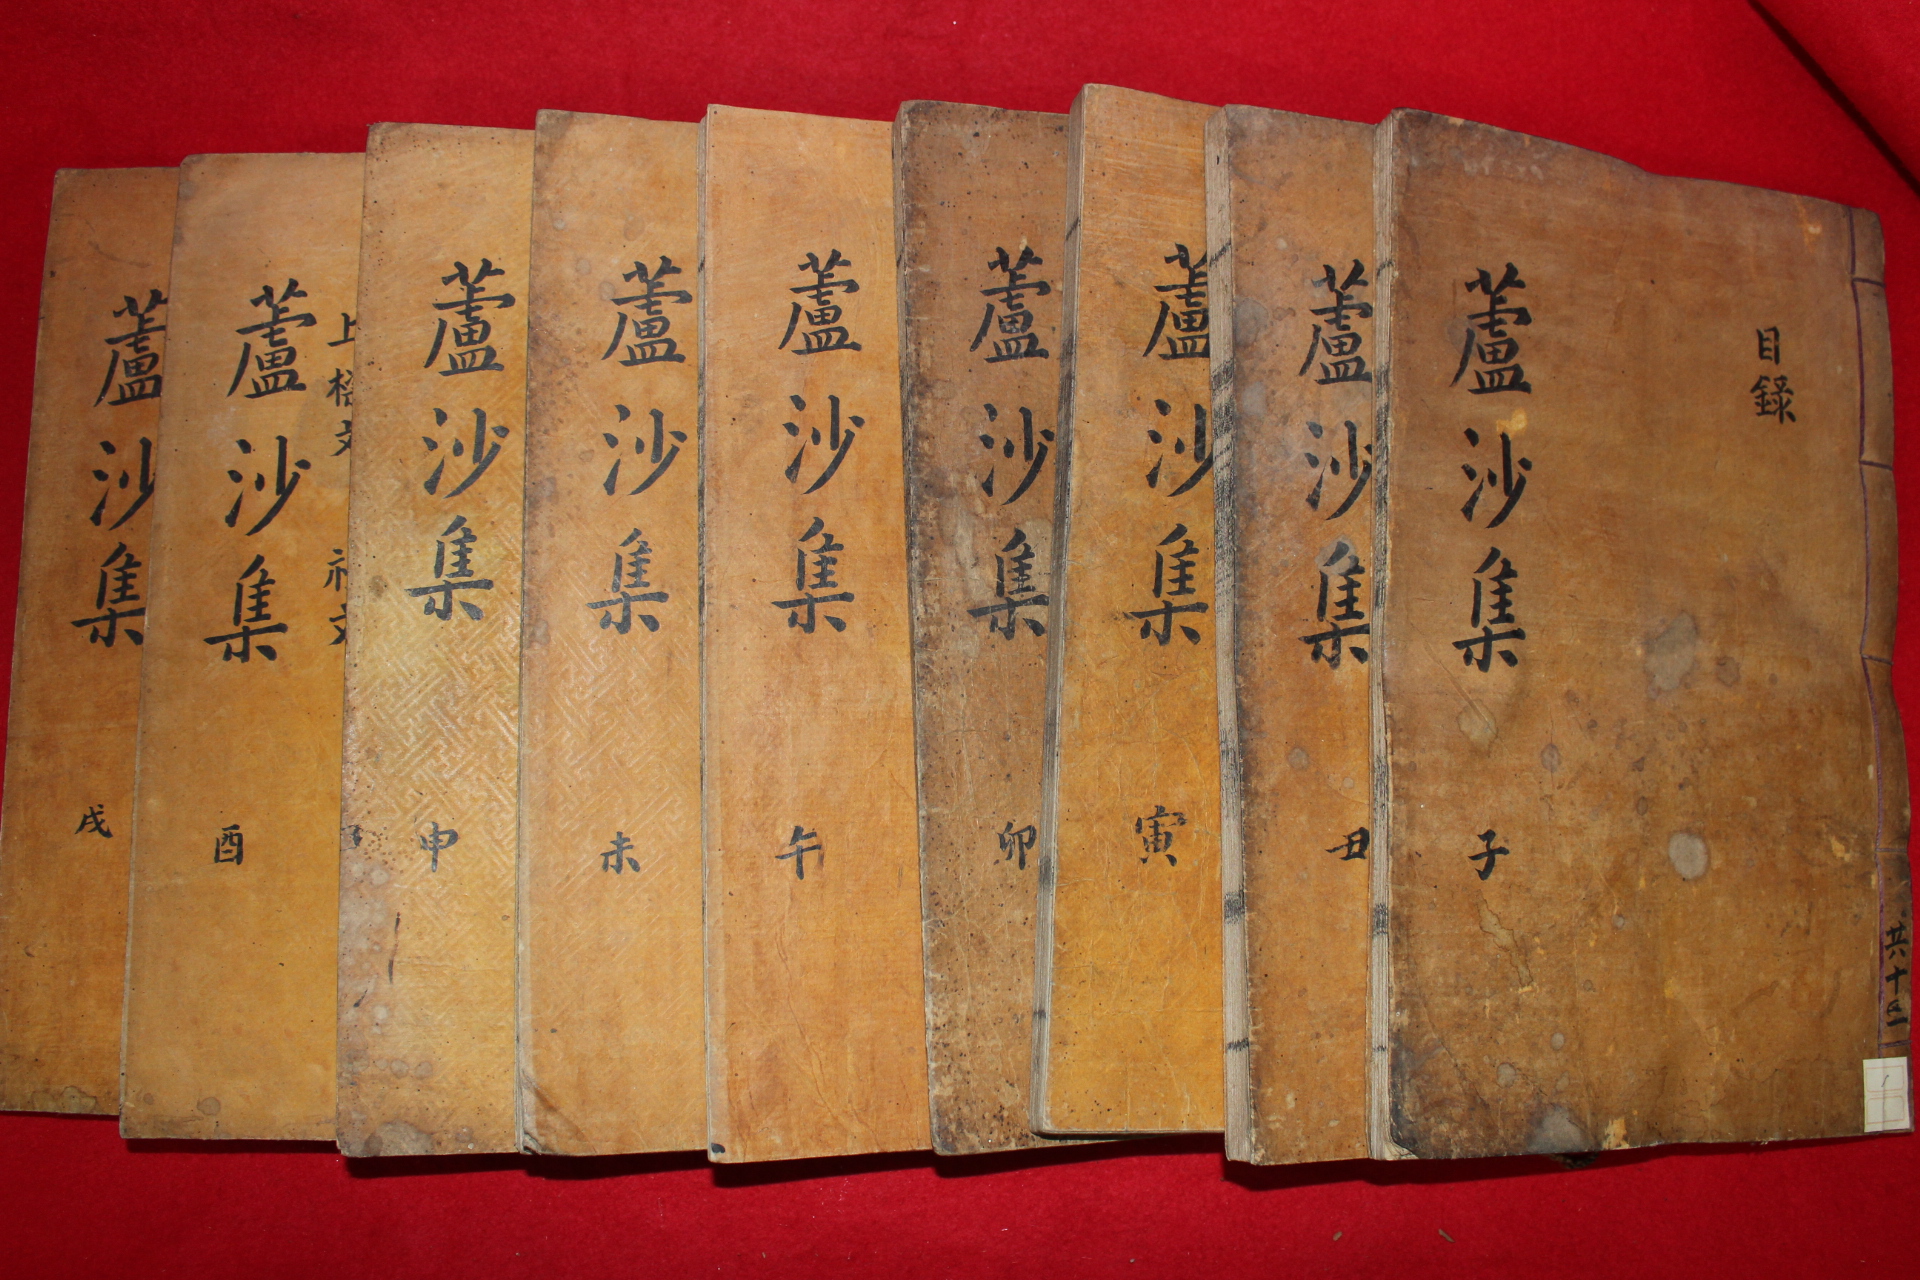 目録
蘆沙集
子
共十
蘆沙集
丑
蘆沙集
寅
蘆沙集
卯
蘆沙集
午
蘆沙集
未
蘆沙集
申
上樑文 祝文
蘆沙集
酉
蘆沙集
戌